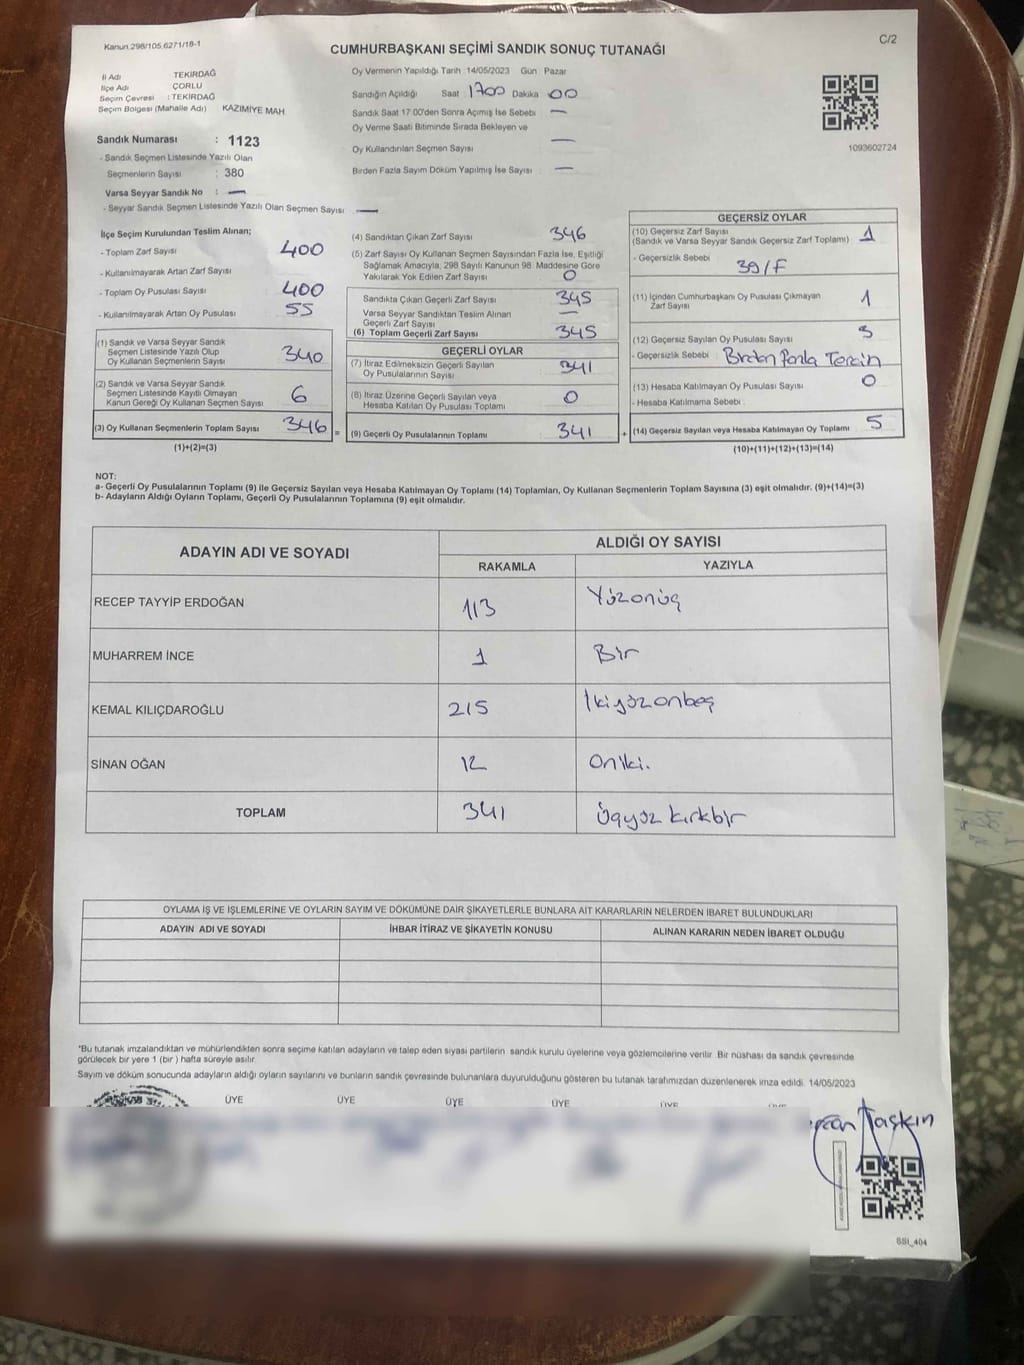 Kanun.298/105.6271/18-1
C/2
CUMHURBAŞKANI SEÇİMİ SANDIK SONUÇ TUTANAĞI
İl Adı TEKİRDAĞ
İlçe Adı ÇORLU
Seçim Çevresi : TEKİRDAĞ
Seçim Bölgesi (Mahalle Adı) KAZIMİYE MAH.
Oy Vermenin Yapıldığı Tarih :14/05/2023 Gün : Pazar
Sandığın Açıldığı Saat : 1700 Dakika : 00
Sandık Saat 17:00'den Sonra Açımış İse Sebebi : —
Oy Verme Saati Bitiminde Sırada Bekleyen ve
Oy Kullandırılan Seçmen Sayısı : —
Birden Fazla Sayım Döküm Yapılmış İse Sayısı : —
1093602724
Sandık Numarası : 1123
- Sandık Seçmen Listesinde Yazılı Olan
Seçmenlerin Sayısı : 380
Varsa Seyyar Sandık No : —
- Seyyar Sandık Seçmen Listesinde Yazılı Olan Seçmen Sayısı : —
İlçe Seçim Kurulundan Teslim Alınan;
- Toplam Zarf Sayısı 400
- Kullanılmayarak Artan Zarf Sayısı
- Toplam Oy Pusulası Sayısı 400
- Kullanılmayarak Artan Oy Pusulası 55
(1) Sandık ve Varsa Seyyar Sandık
Seçmen Listesinde Yazılı Olup
Oy Kullanan Seçmenlerin Sayısı 340
(2) Sandık ve Varsa Seyyar Sandık
Seçmen Listesinde Kayıtlı Olmayan
Kanun Gereği Oy Kullanan Seçmen Sayısı 6
(3) Oy Kullanan Seçmenlerin Toplam Sayısı 346 =
(1)+(2)=(3)
(4) Sandıktan Çıkan Zarf Sayısı 346
(5) Zarf Sayısı Oy Kullanan Seçmen Sayısından Fazla İse, Eşitliği
Sağlamak Amacıyla; 298 Sayılı Kanunun 98. Maddesine Göre
Yakılarak Yok Edilen Zarf Sayısı 0
Sandıkta Çıkan Geçerli Zarf Sayısı 345
Varsa Seyyar Sandıktan Teslim Alınan
Geçerli Zarf Sayısı —
(6) Toplam Geçerli Zarf Sayısı 345
GEÇERLİ OYLAR
(7) İtiraz Edilmeksizin Geçerli Sayılan
Oy Pusulalarının Sayısı 341
(8) İtiraz Üzerine Geçerli Sayılan veya
Hesaba Katılan Oy Pusulası Toplamı 0
(9) Geçerli Oy Pusulalarının Toplamı 341 +
GEÇERSİZ OYLAR
(10) Geçersiz Zarf Sayısı
(Sandık ve Varsa Seyyar Sandık Geçersiz Zarf Toplamı) 1
- Geçersizlik Sebebi : 39/F
(11) İçinden Cumhurbaşkanı Oy Pusulası Çıkmayan
Zarf Sayısı 1
(12) Geçersiz Sayılan Oy Pusulası Sayısı 3
- Geçersizlik Sebebi : Birden fazla Tercih
(13) Hesaba Katılmayan Oy Pusulası Sayısı 0
- Hesaba Katılmama Sebebi :
(14) Geçersiz Sayılan veya Hesaba Katılmayan Oy Toplamı 5
(10)+(11)+(12)+(13)=(14)
NOT:
a- Geçerli Oy Pusulalarının Toplamı (9) ile Geçersiz Sayılan veya Hesaba Katılmayan Oy Toplamı (14) Toplamları, Oy Kullanan Seçmenlerin Toplam Sayısına (3) eşit olmalıdır. (9)+(14)=(3)
b- Adayların Aldığı Oyların Toplamı, Geçerli Oy Pusulalarının Toplamına (9) eşit olmalıdır.
ADAYIN ADI VE SOYADI ALDIĞI OY SAYISI
RAKAMLA YAZIYLA
RECEP TAYYİP ERDOĞAN 113 Yüzonüç
MUHARREM İNCE 1 Bir
KEMAL KILIÇDAROĞLU 215 İkiyüzonbeş
SİNAN OĞAN 12 Oniki.
TOPLAM 341 Üçyüz kırkbir
OYLAMA İŞ VE İŞLEMLERİNE VE OYLARIN SAYIM VE DÖKÜMÜNE DAİR ŞİKAYETLERLE BUNLARA AİT KARARLARIN NELERDEN İBARET BULUNDUKLARI
ADAYIN ADI VE SOYADI İHBAR İTİRAZ VE ŞİKAYETİN KONUSU ALINAN KARARIN NEDEN İBARET OLDUĞU
*Bu tutanak imzalandıktan ve mühürlendikten sonra seçime katılan adayların ve talep eden siyasi partilerin sandık kurulu üyelerine veya gözlemcilerine verilir. Bir nüshası da sandık çevresinde
görülecek bir yere 1 (bir ) hafta süreyle asılır.
Sayım ve döküm sonucunda adayların aldığı oyların sayılarını ve bunların sandık çevresinde bulunanlara duyurulduğunu gösteren bu tutanak tarafımızdan düzenlenerek imza edildi. 14/05/2023
ÜYE ÜYE ÜYE ÜYE ÜYE
Taşkın
SSI_404